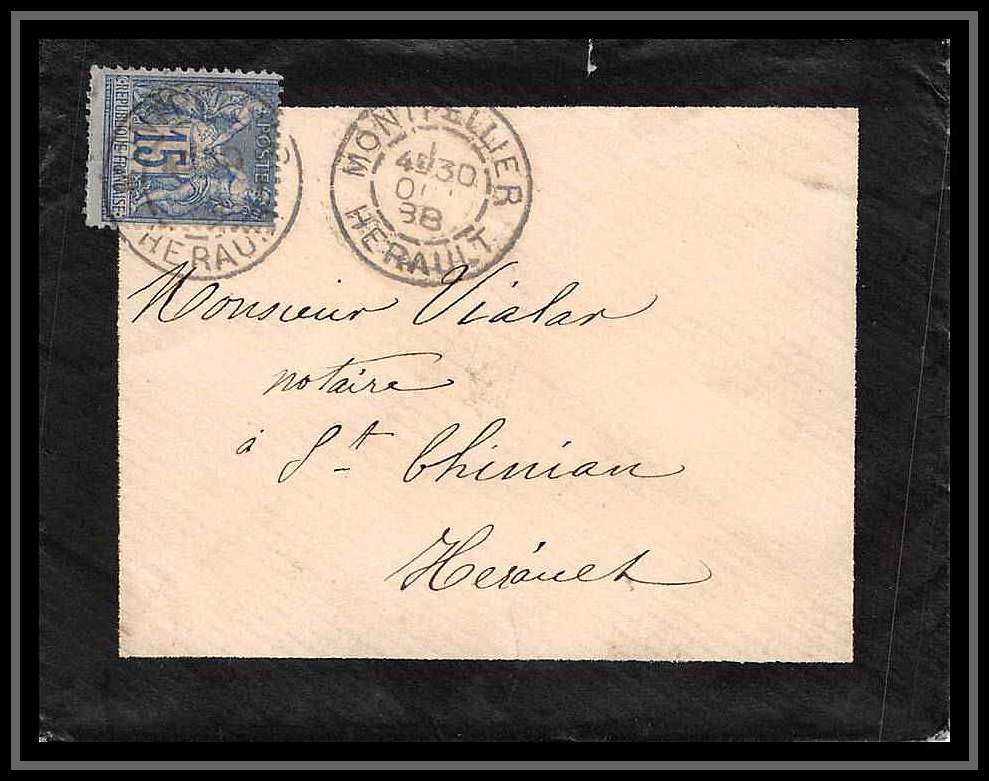 REPUBLIQUE FRANÇAISE
15
POSTES
HERAULT
MONTPELLIER
4 30
88
HERAULT
Monsieur Vialar
notaire
à St Chinian
Hérault